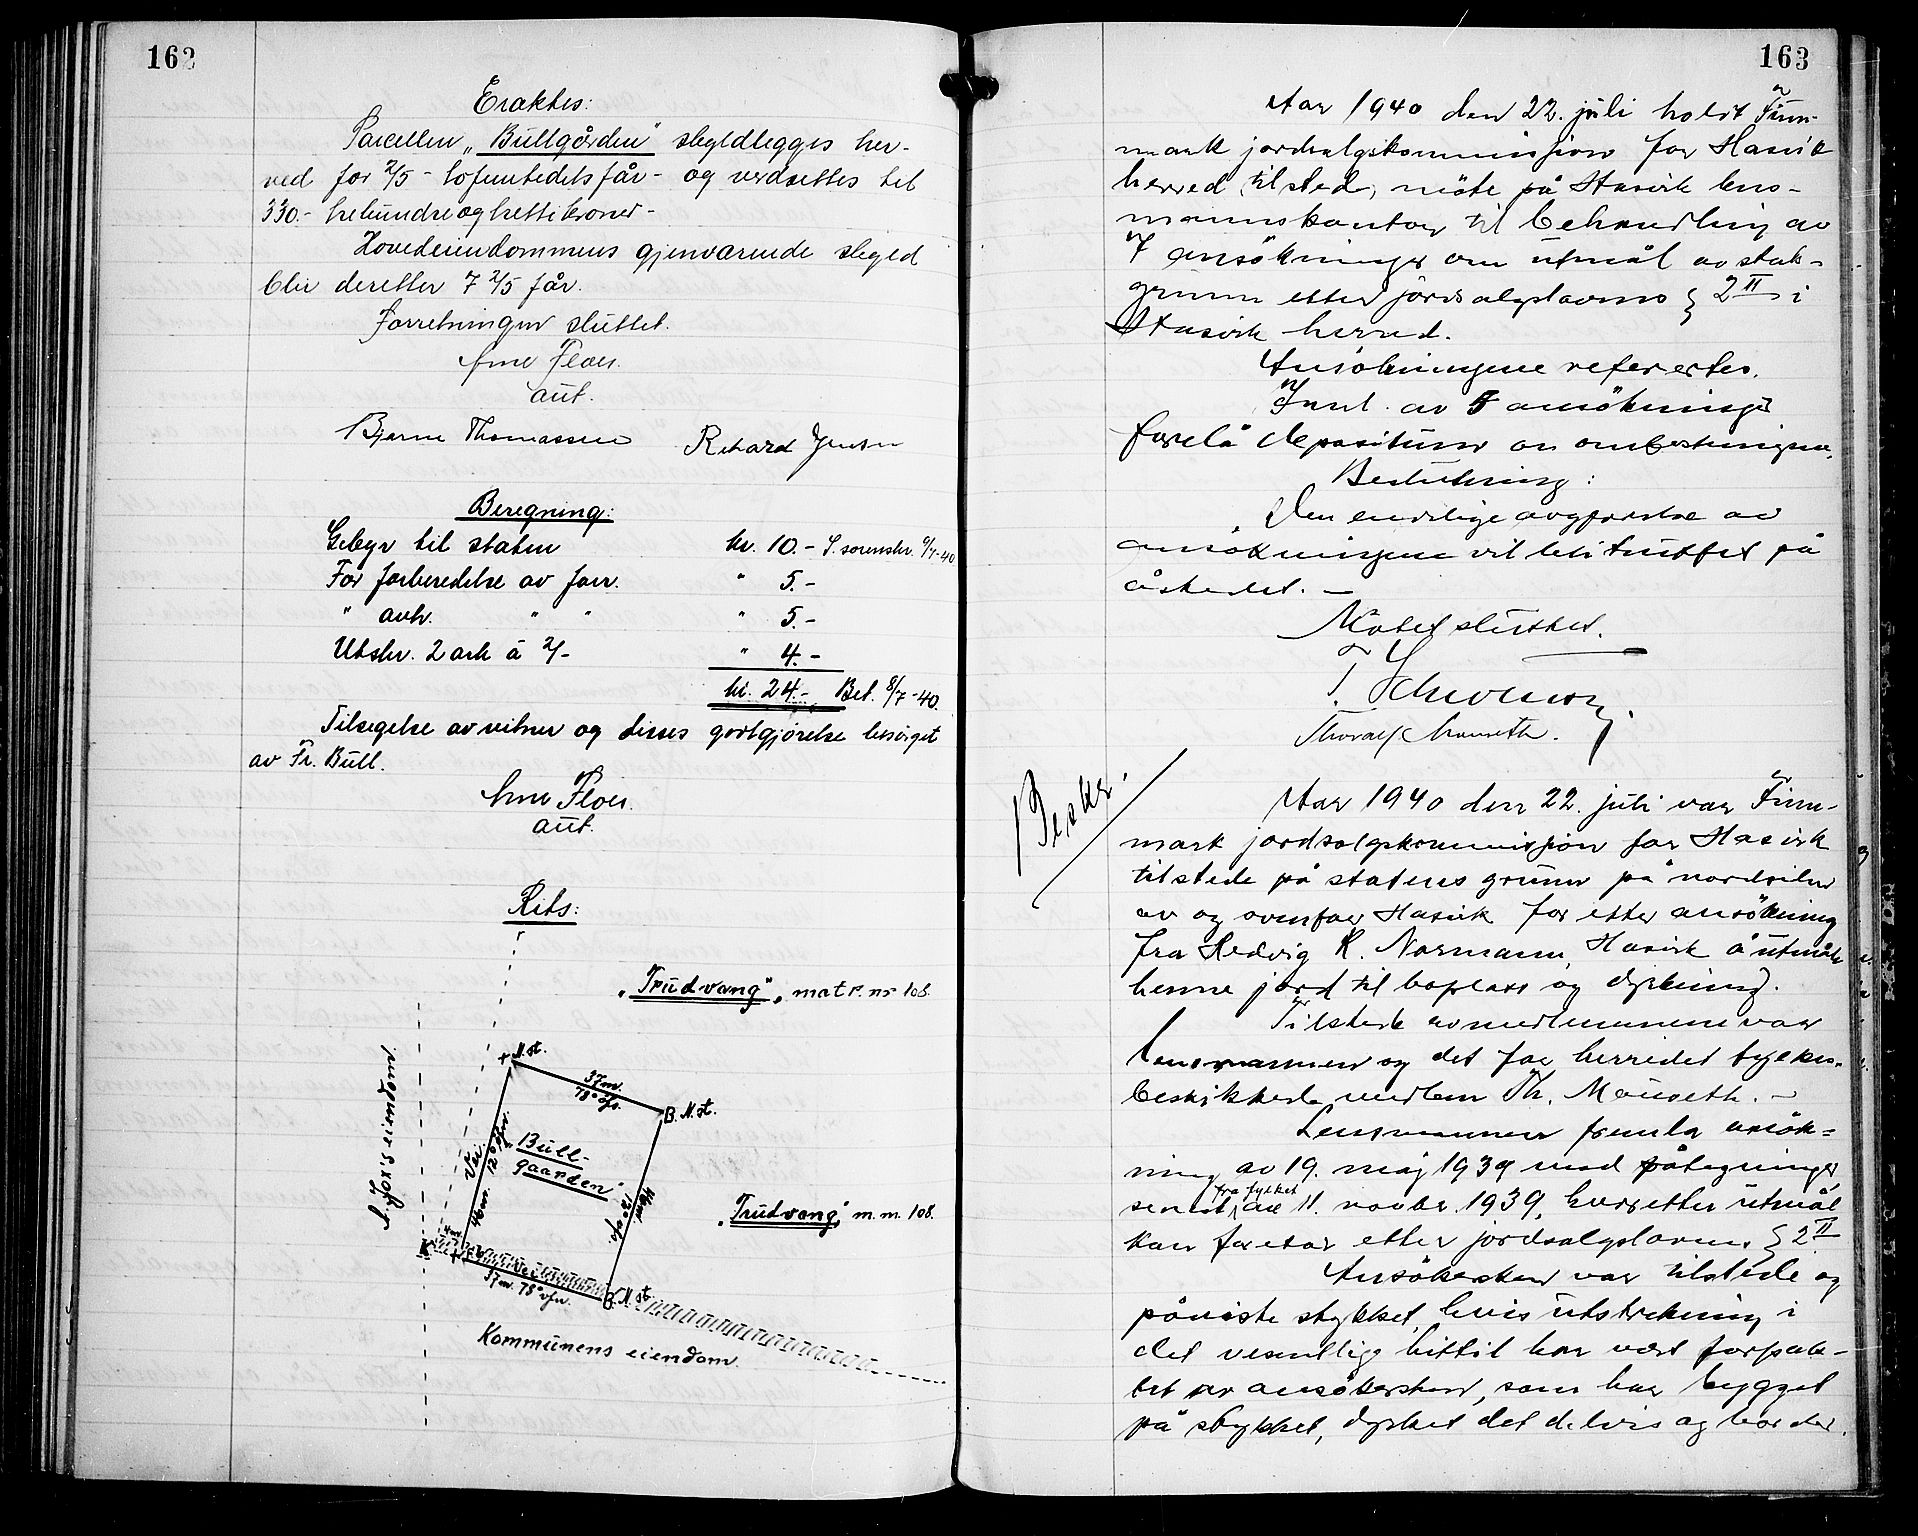 162
Eraktes:
Parcellen „Bullgården“ skyldlegges her-
ved for 2/5 - tofemtedels får - og verdsettes til
330.- trehundreogtrettikroner -
Hovedeiendommens gjenværende skyld
blir deretter 7 2/5 får.
Forretningen sluttet.
Arne Floer.
aut.
Bjarne Thomassen Rikard Jensen
Beregning:
Gebyr til staten kr. 10.- S. sorenskr. 9/7-40
For forberedelse av forr. " 5.-
" avh. " " " 5.-
Utskr. 2 ark á 2/- " 4.-
kr. 24.- Bet. 8/7-40.
Tilsigelse av vitner og disses godtgjørelse besørget
av Fr. Bull.
Arne Floer.
aut.
Rits:
„Trudvang“, matr. nr 108.
N. st.
37 m.
78° ofn.
B. N. st.
„Bull-
gaarden“
Vei
46 m. 12° ofn.
„Trudvang“, m. nr. 108.
K
37 m. 78° ofn.
B. N. st.
Kommunens eiendom.
163
Aar 1940 den 22. juli holdt Finn-
mark jordsalgskommisjon for Hasvik
herred, tilsted, möte på Hasvik lens-
mannskontor til behandling av
7 ansökninger om utmål av stats-
grunn etter jordsalgslovens § 2 II i
Hasvik herred.
Ansökningene refertes.
Innt. av 5 ansökninger
forelå depositum av omkostningene.
Beslutning:
Den endelige avgjörelse av
ansökningene vil bli truffet på
åstedet. —
Mötet sluttet.
Thoralf Mauseth.
Beskr.
Aar 1940 den 22. juli var Finn-
mark jordsalgskommisjon for Hasvik
tilstede på statens grunn på nordsiden
av og ovenfor Hasvik for etter ansökning
fra Hedvig K. Normann, Hasvik å utmåle
henne jord til boplass og dyrkning.
Tilstede av medlemmene var
lensmannen og det for herredet fylkes-
beskikkede medlem Th. Mauseth. —
Lensmannen fremla ansök-
ning av 19. maj 1939 med påtegninger
senest fra fylket av 11. novbr. 1939, hvoretter utmål
kan foretas etter jordsalgslovens § 2 II
Ansökersken var tilstede og
påviste stykket, hvis utstrekning i
det vesentlige hittil har vært forpak-
tet av ansökersken, som har bygget
på stykket, dyrket det delvis og bor der.